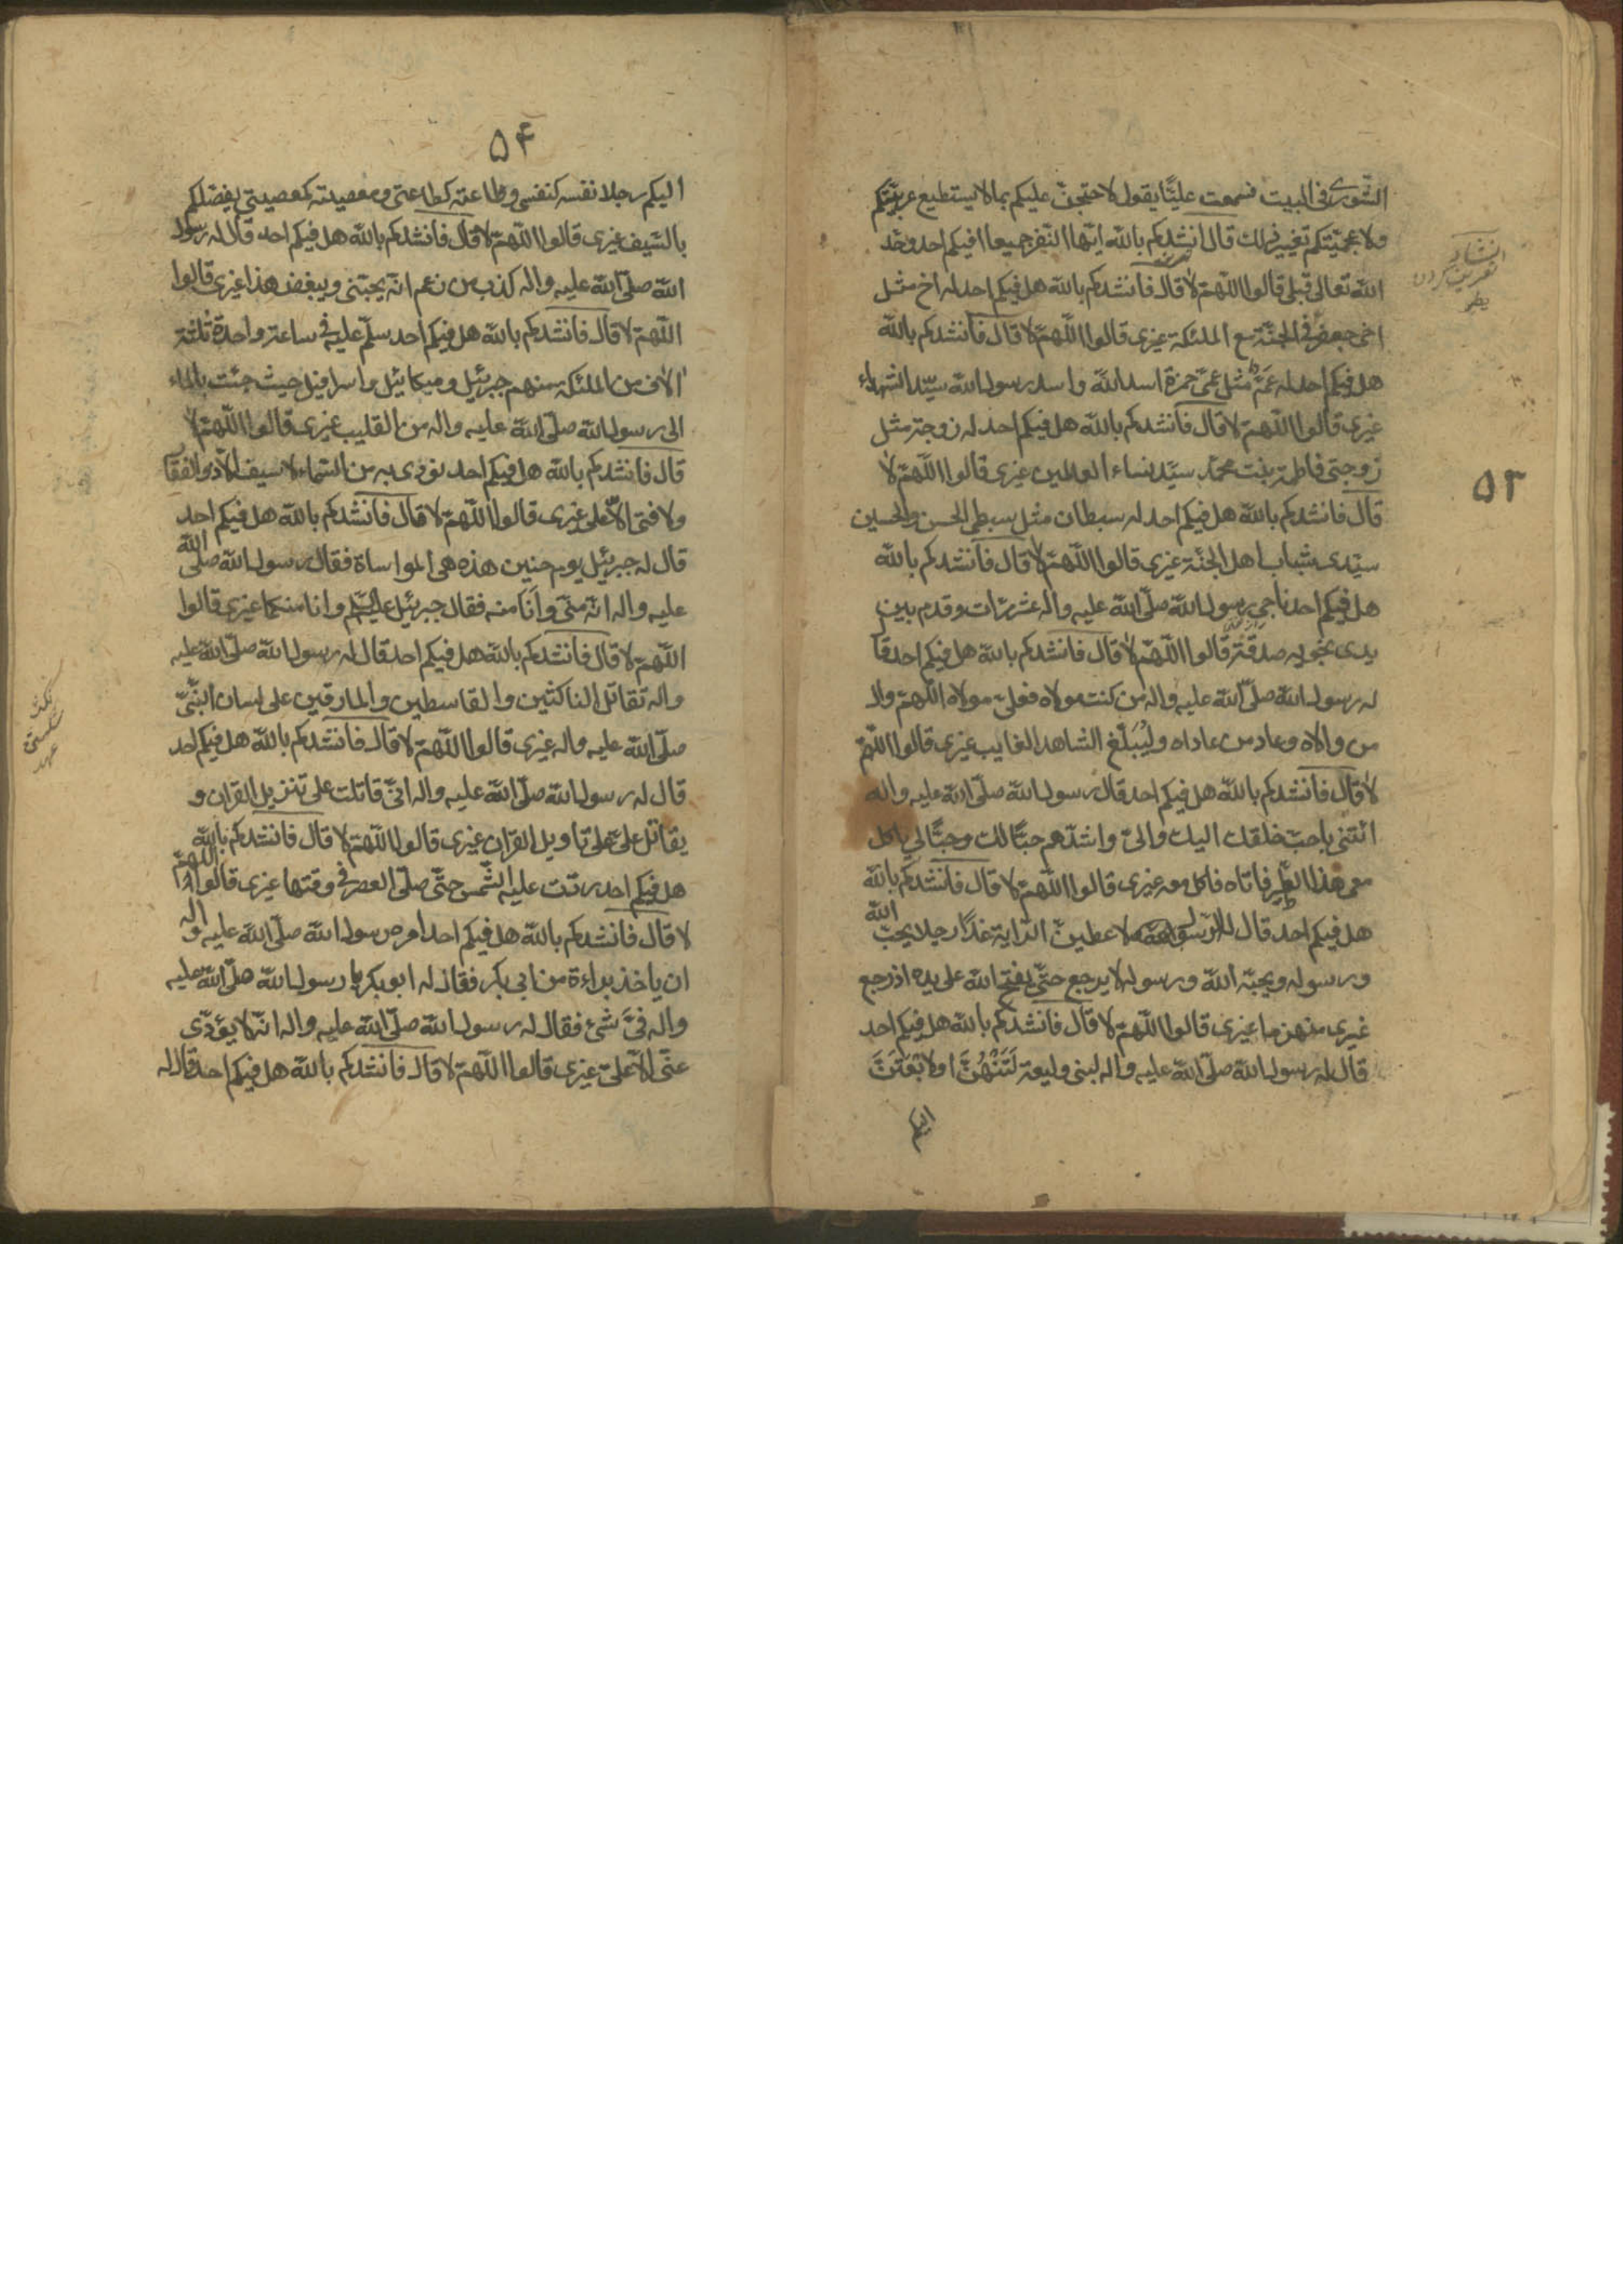 الشورى فى البيت فسمعت عليّا يقول لاحتجنّ عليكم بما لا يستطيع عربيّكم
ولا عجميّتكم تغيير ذلك قال انشدكم بالله ايّها النفر جميعا افيكم احد وحّد
الله تعالى قبلى قالوا اللّهمّ لا قال فانشدكم بالله هل فيكم احد له اخ مثل
اخى جعفر فى الجنّة مع الملئكة غيرى قالوا اللّهمّ لا قال فانشدكم بالله
هل فيكم احد له عمّ مثل عمّى حمزة اسد الله واسد رسول الله سيّد الشهداء
غيرى قالوا اللّهمّ لا قال فانشدكم بالله هل فيكم احد له زوجة مثل
زوجتى فاطمة بنت محمّد سيّدة نساء العالمين غيرى قالوا اللّهمّ لا
قال فانشدكم بالله هل فيكم احد له سبطان مثل سبطى الحسن والحسين
سيّدى شباب اهل الجنّة غيرى قالوا اللّهمّ لا قال فانشدكم بالله
هل فيكم احد ناجى رسول الله صلّى الله عليه واله عشر مرّات وقدم بين
يدى نجويه صدقة قالوا اللّهمّ لا قال فانشدكم بالله هل فيكم احد قا
له رسول الله صلّى الله عليه واله من كنت مولاه فعلىّ مولاه اللّهمّ وال
من والاه وعاد من عاداه وليُبَلّغ الشاهد الغايب غيرى قالوا اللّهمّ
لا قال فانشدكم بالله هل فيكم احد قال رسول الله صلّى الله عليه واله
ائتنى باحبّ خلقك اليك والىّ واشدّهم حبّا لك وحبّا لى ياكل
معى هذا الطّير فاتاه فاكل معه غيرى قالوا اللّهمّ لا قال فانشدكم بالله
هل فيكم احد قال له رسول الله لاعطينّ الرّاية غدًا رجلا يحبّ الله
ورسوله ويحبّه الله ورسوله لا يرجع حتّى يفتح الله على يده اذ رجع
غيرى منهزما غيرى قالوا اللّهمّ لا قال فانشدكم بالله هل فيكم احد
قال له رسول الله صلّى الله عليه واله لبنى وليعة لَتَنْهُنَّ او لابْعَثَنَّ
اليكم
انشاد
تعريف كردن
۵۳
۵۴
اليكم رجلا نفسه كنفسى وطاعته كطاعتى ومعصيته كمعصيتى يفضّلكم
بالسّيف غيرى قالوا اللّهمّ لا قال فانشدكم بالله هل فيكم احد قال له رسول
الله صلّى الله عليه واله كذب من زعم انّه يحبّنى ويبغض هذا غيرى قالوا
اللّهمّ لا قال فانشدكم بالله هل فيكم احد سلّم عليه فى ساعة واحدة ثلثة
الاف من الملئكه منهم جبرئيل وميكائيل واسرافيل حيث جئت بالماء
الى رسول الله صلّى الله عليه واله من القليب غيرى قالوا اللّهمّ لا
قال فانشدكم بالله هل فيكم احد نودى به من السّماء لا سيف الّا ذو الفقا
ولا فتى الّا علىّ غيرى قالوا اللّهمّ لا قال فانشدكم بالله هل فيكم احد
قال له جبرئيل يوم حنين هذه هى المواساة فقال رسول الله صلّى الله
عليه واله انّه منّى وانا منه فقال جبرئيل وانا منكما غيرى قالوا
اللّهمّ لا قال فانشدكم بالله هل فيكم احد قال له رسول الله صلّى الله عليه
واله تقاتل الناكثين والقاسطين والمارقين على لسان النّبىّ
صلّى الله عليه واله غيرى قالوا اللّهمّ لا قال فانشدكم بالله هل فيكم احد
قال له رسول الله صلّى الله عليه واله انّى قاتلت على تنزيل القران و
يقاتل علىّ على تاويل القران غيرى قالوا اللّهمّ لا قال فانشدكم بالله
هل فيكم احد ردّت عليه الشّمس حتّى صلّى العصر فى وقتها غيرى قالوا اللّهمّ
لا قال فانشدكم بالله هل فيكم احد امره رسول الله صلّى الله عليه واله
ان ياخذ براءة من ابى بكر فقال له ابو بكر يا رسول الله صلّى الله عليه
واله فىّ شئ فقال له رسول الله صلّى الله عليه واله انّه لا يؤدّى
عنّى الّا علىّ غيرى قالوا اللّهمّ لا قال فانشدكم بالله هل فيكم احد قال له
نكث
شكستن
عهد